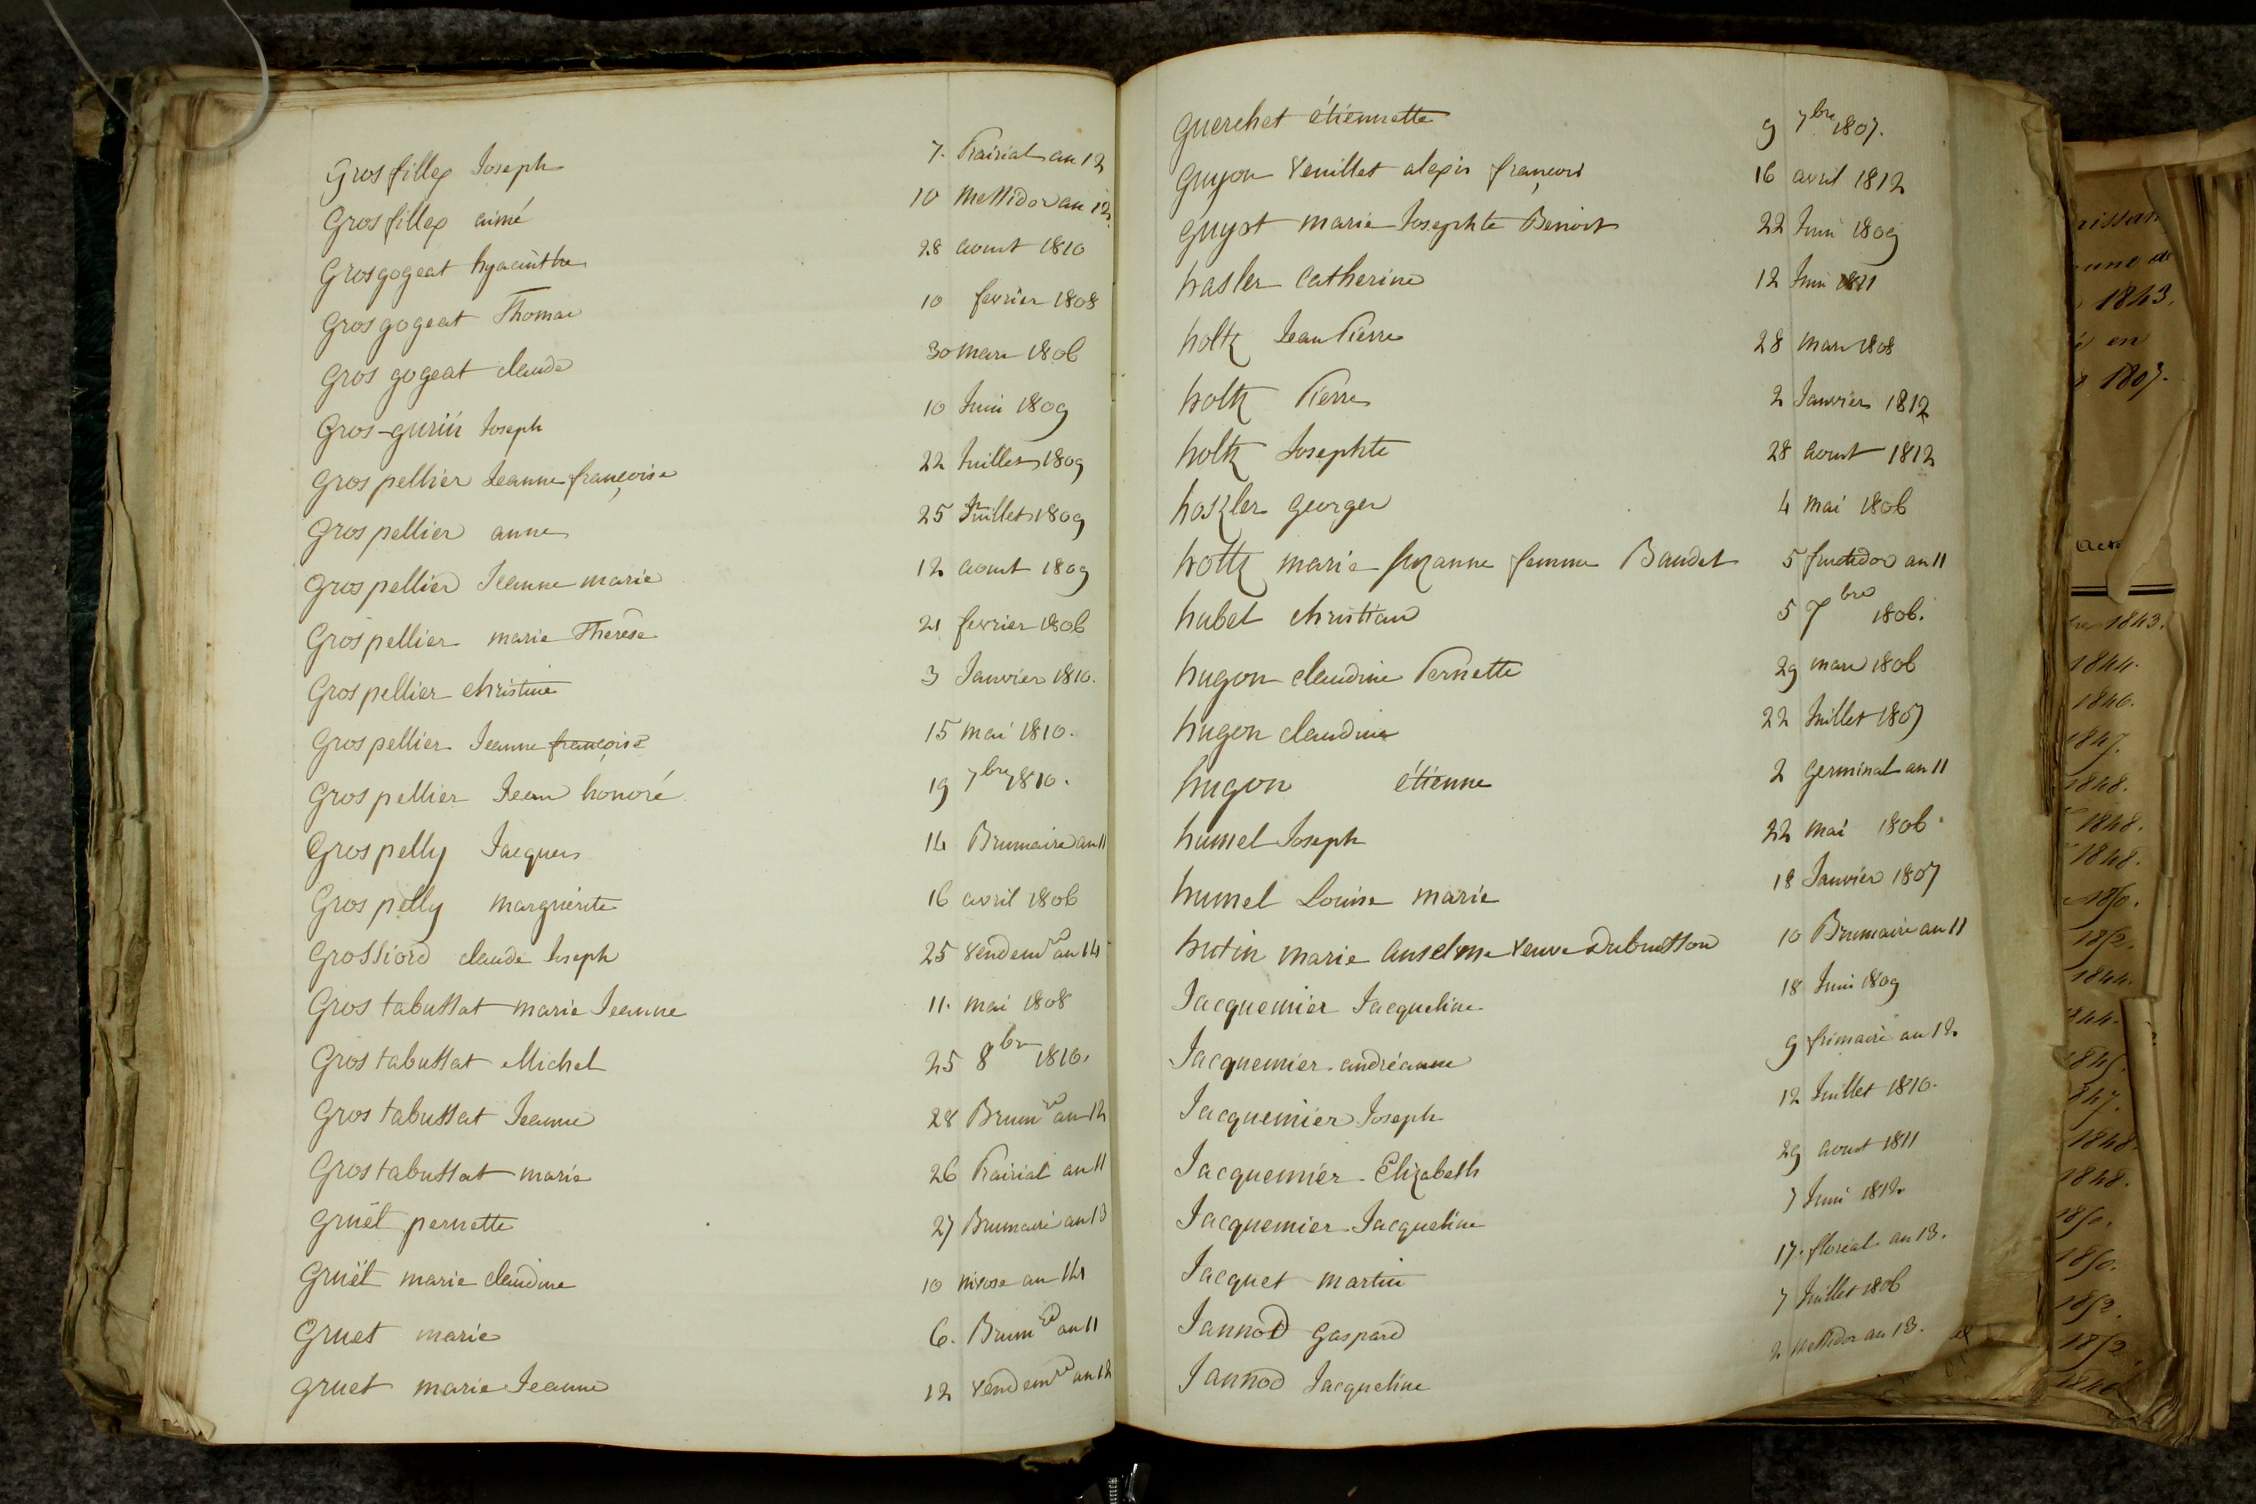 Grosfillex Joseph 7. Prairial an 12
Grosfillex aimé 10 Messidor an 12
Grosgogeat hyacinthe 28 aoust 1810
Grosgogeat Thomas 10 fevrier 1808
Gros gogeat claude 30 mars 1806
Gros-gurin Joseph 10 Juin 1809
Grospellier Jeanne françoise 22 Juillet 1809
Grospellier anne 25 Juillet 1809
Grospellier Jeanne marie 12 aoust 1809
Grospellier marie Therèse 21 fevrier 1806
Grospellier christine 3 Janvier 1810.
Grospellier Jeanne françoise 15 mai 1810.
Grospellier Jean honoré 19 7bre 1810.
Grospelly Jacques 14 Brumaire an 11
Grospelly marguerite 16 avril 1806
Grossiord claude Joseph 25 vendemre an 14
Gros tabussat marie Jeanne 11. mai 1808
Gros tabussat Michel 25 8bre 1810.
Gros tabussat Jeanne 28 Brumre an 12
Gros tabussat marie 26 Prairial an 11
Gruët pernette 27 Brumaire an 13
Gruët marie claudine 10 nivose an 14
Gruet marie 6. Brumre an 11
gruet marie Jeanne 12 vendemre an 12
Guerchet étiennette 9 7bre 1807.
Guyon veuillet alexis françois 16 avril 1812
Guyot marie Josephte Benoit 22 Juin 1809
hasler Catherine 12 Juin 1811
holtz Jean Pierre 28 mars 1808
holtz Pierre 2 Janvier 1812
holtz Josephte 28 aoust 1812
haszler georges 4 mai 1806
holtz marie suzanne femme Baudet 5 fructidor an 11
hubel christian 5 7bre 1806.
hugon claudine Pernette 29 mars 1806
hugon claudine 22 Juillet 1807
hugon étienne 2 germinal an 11
humel Joseph 22 mai 1806
humel Louise marie 18 Janvier 1807
hutin marie anselme veuve Dubuisson 10 Brumaire an 11
Jacquemier Jacqueline 18 Juin 1809
Jacquemier andréanne 9 frimaire an 12.
Jacquemier Joseph 12 Juillet 1810.
Jacquemier Elizabeth 29 aoust 1811
Jacquemier Jacqueline 7 Juin 1812
Jacquet martin 17. floréal an 13.
Jannod Gaspard 7 Juillet 1806
Jannod Jacqueline 2 Messidor an 13.
1843.
en
1807.
1843.
1844.
1846.
1847.
1848.
1848.
1848.
1850.
1852.
1844.
1845.
1847.
1848
1848.
1850.
1850.
1852.
1852